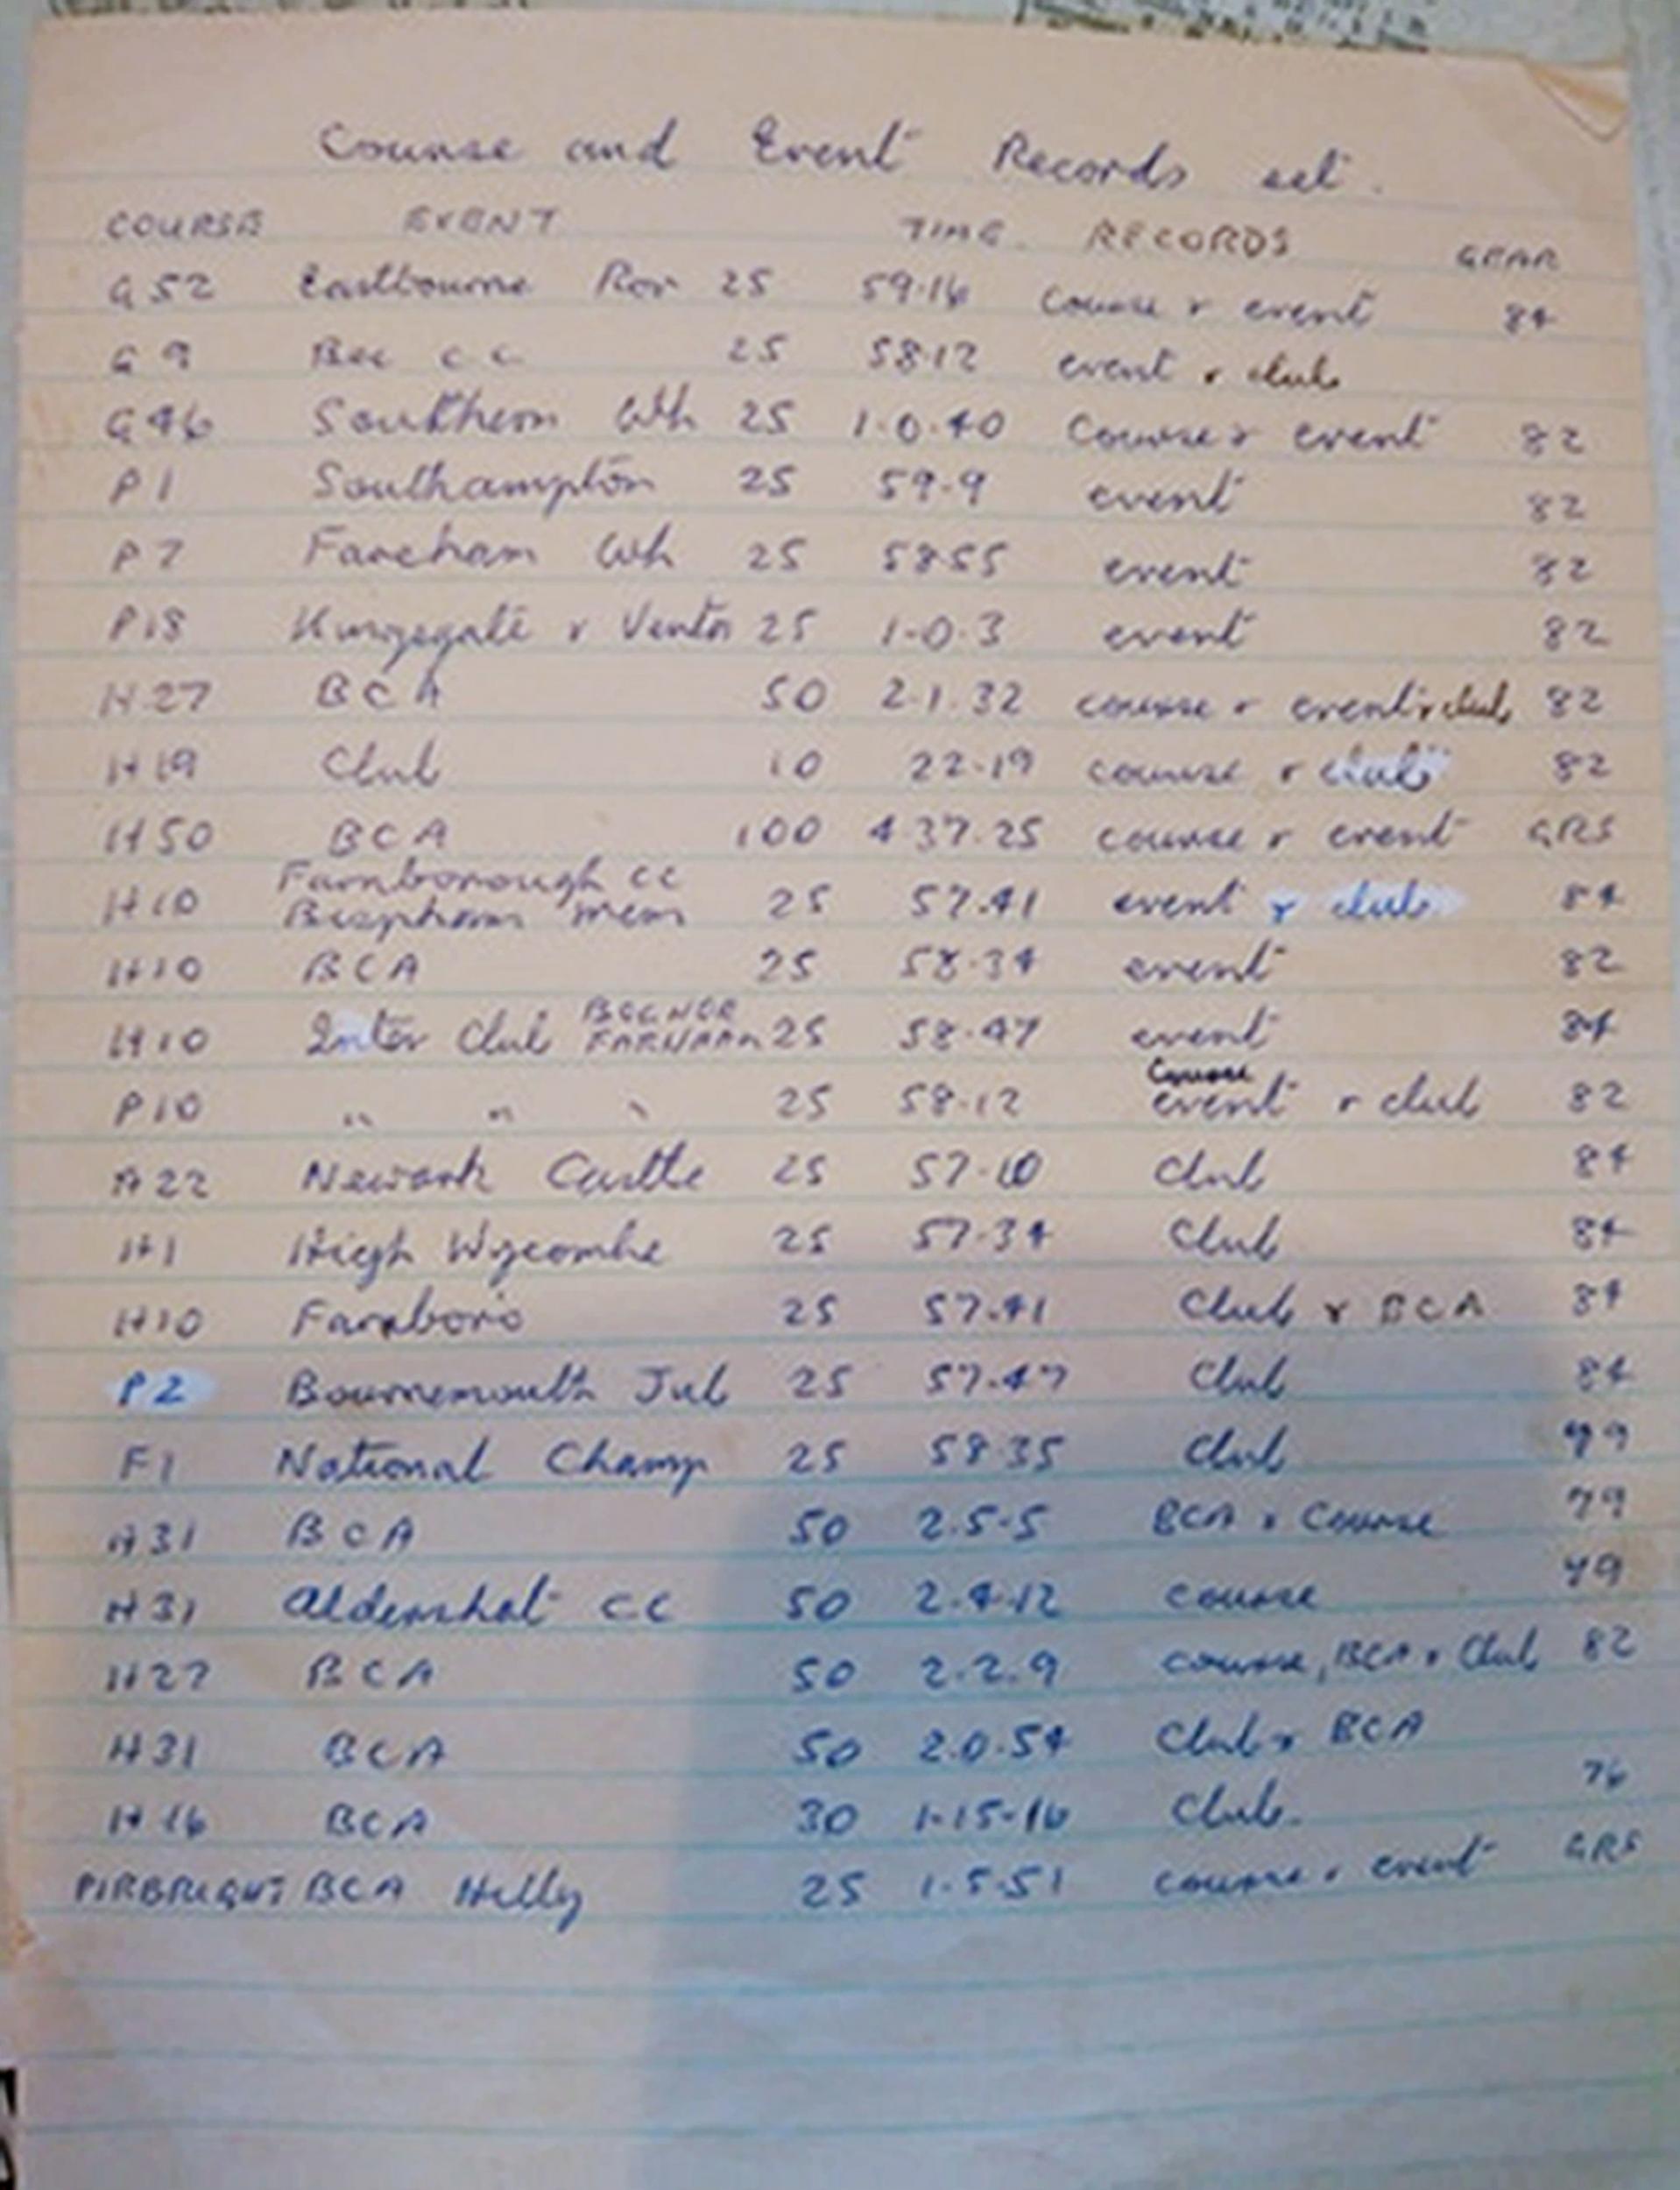 Course and Event Records set.
COURSE EVENT TIME RECORDS GEAR
G52 Eastbourne Rov 25 59.16 Course & event 84
G9 Bec CC 25 58.12 event & club
G46 Southern Wh 25 1-0-40 Course & event 82
P1 Southampton 25 59-9 event 82
P7 Fareham Wh 25 58 55 event 82
P18 25 1-0-3 event 82
H27 BCA 50 2.1.32 course & event & club 82
H19 Club 10 22-19 course & club 82
H50 BCA 100 4 37.25 course & event GRS
Farnborough CC
H10 Mem 25 57.41 event & club 84
H10 BCA 25 58.34 event 82
BOGNOR
H10 Inter Club FARNHAM 25 58.47 event 84
Course
P10 " " " 25 58-12 event & club 82
A22 Newark Castle 25 57-10 Club 84
H1 High Wycombe 25 57-34 Club 84
H10 Farnboro 25 57.41 Club & BCA 84
P2 Bournemouth Jub 25 57.47 Club 84
F1 National Champ 25 58 35 Club
H31 BCA 50 2.5-5 BCA & Course 79
H31 Aldershot CC 50 2.4.12 course 79
H27 BCA 50 2.2.9 course, BCA & Club 82
H31 BCA 50 2.0.54 Club & BCA
H16 BCA 30 1-15-16 Club. 76
PIRBRIGHT BCA Hilly 25 1-5-51 course & event GRS